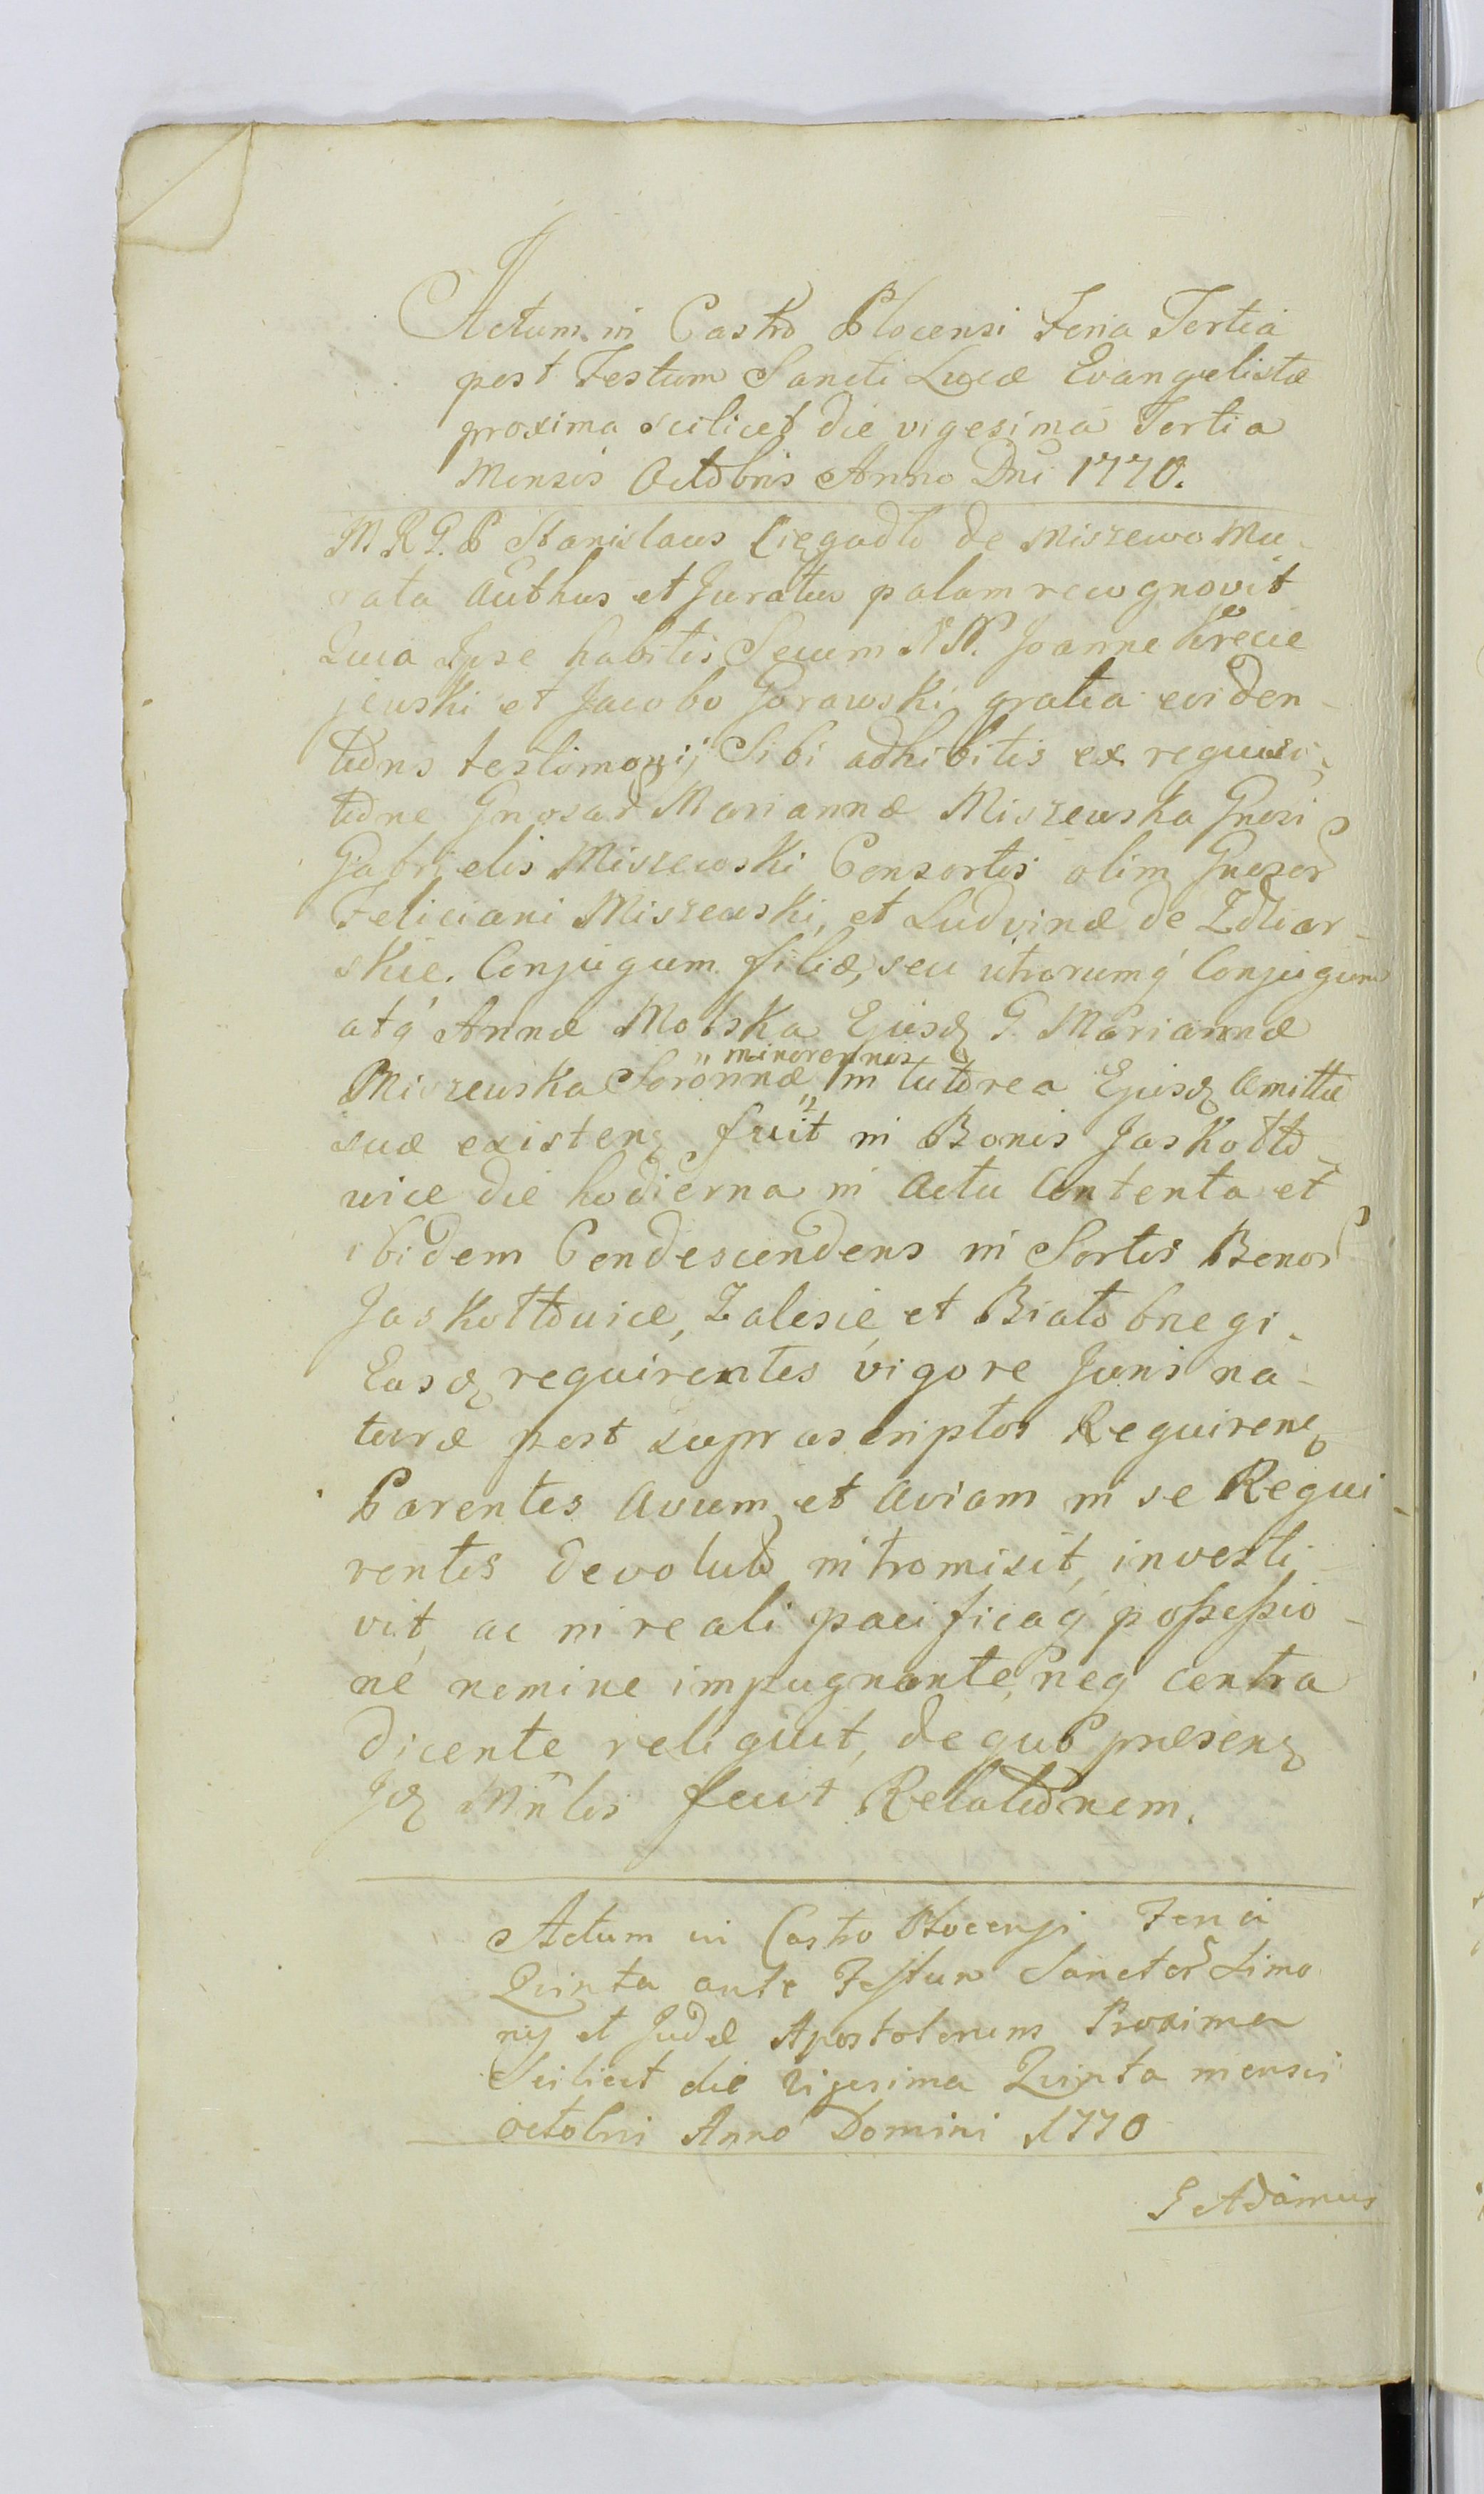 Actum in Castro Plocensi Feria Tertia
post Festum Sancti Lucæ Evangelistæ
proxima scilicet die vigesima Tertia
Mensis Octobris Anno Dni 1770.
M. R. G. P Stanislaus de Miszewo Mu-
rata Authus et Juratus palam recognovit
Quia Ipse habitis Secum NN. Joanne
jewski et Jacobo Gorawski gratia eviden-
tions testimonij Sibi adhibitis ex requisi-
tione Gnosar Mariannæ Miszewska Gnosi
Gabrielis Miszewski Consortis olim Gnosor
Feliciani Miszewski, et Ludvinæ de
skie. Conjugum filiæ, seu utrorumq Conjugum
atq Annæ Molska Ejusd G. Mariannæ
Miszewska Soronnæ minorennis in tutorea Ejusd Amittæ
suæ existen fuit in Bonis Jaskołło-
wice die hodierna in Actu Contenta et
ibidem Condescendens in Sortes Bonor
Jaskołłowice, Zalesie, et Białobrzegi.
Easd requirentes vigore Juris na-
turæ post suprascriptos Requiren
Parentes Avum et Aviam in se Requi
rentes devolut intromisit, investi-
vit, ac in reali pacificaq possessio-
ne nemine impugnante, neq contra
dicente reliquit, de quo præsen
Id Mnlis fecit Relationem.
Actum in Castro Plocensi Feria
Quinta ante Festum Sanctor Simo
nis et Judæ Apostolorum Proxima
Scilicet die Vigesima Quinta mensis
Octobris Anno Domini 1770
G Adamus